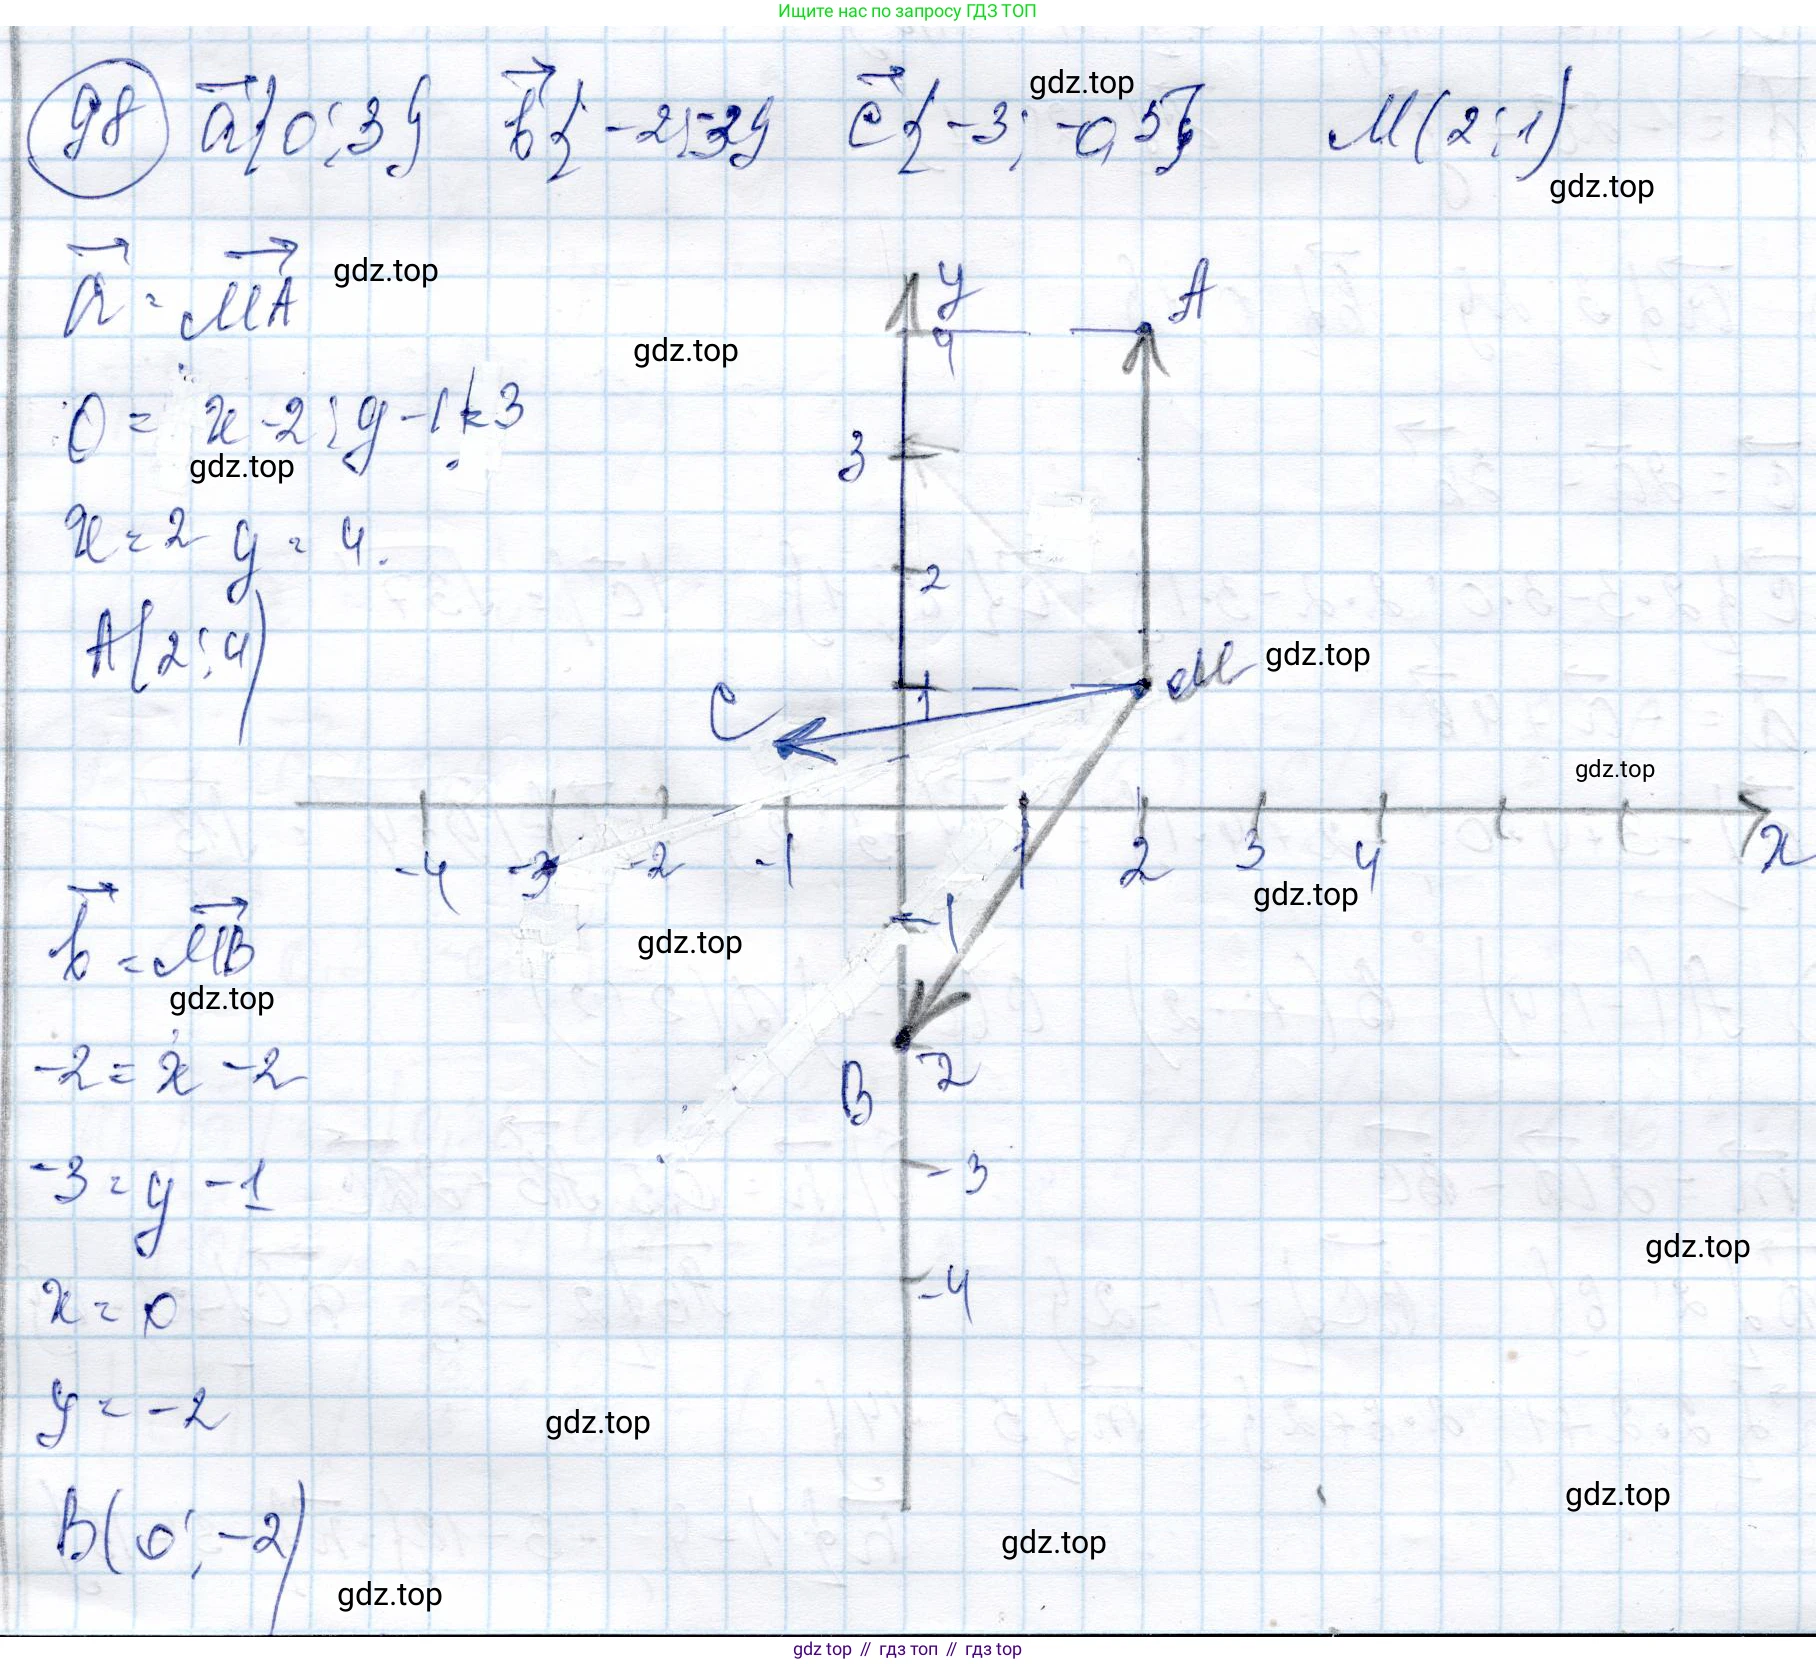 Ищите нас по запросу ГДЗ ТОП
98 a{0;3} b{-2;-3} c{-3;-0,5} M(2;1)
gdz.top
gdz.top
a = MA
gdz.top
y
A
4
gdz.top
0 = x-2; y-1=3
3
gdz.top
x=2 y=4.
2
A(2;4)
gdz.top
M
C
1
gdz.top
-4 -3 -2 -1 1 2 3 4 x
gdz.top
b = MB
-1
gdz.top
gdz.top
-2 = x-2
B -2
-3 = y-1
-3
gdz.top
x=0
-4
y=-2
gdz.top
gdz.top
B(0;-2)
gdz.top
gdz.top
gdz top // гдз топ // гдз top